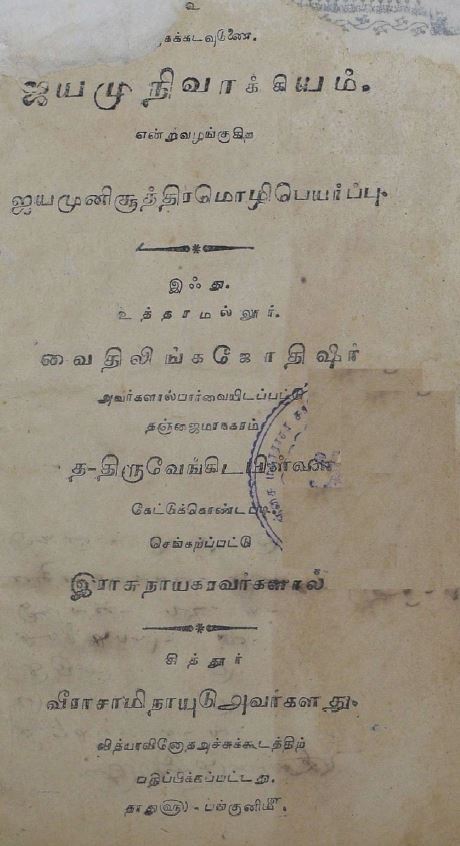 உ
கக்கடவுடுணை.
ஜயமுநிவாக்கியம்.
என்றுவழங்குகிற
ஜயமுனிசூத்திரமொழிபெயர்ப்பு.
இஃது.
உத்தரமல்லூர்.
வைதிலிங்கஜோதிஷர்
அவர்களால்பார்வையிடப்பட்டு
தஞ்சைமாநகரம்
த-திருவேங்கிடபிள்ளை
கேட்டுக்கொண்டபடி
செங்கற்ப்பட்டு
இராசுநாயகரவர்களால்
சித்தூர்
வீராசாமிநாயுடுஅவர்களது
வித்யாவினோதஅச்சுக்கூடத்திற்
பதிப்பிக்கப்பட்டது.
தாது௵ - பங்குனி௴.